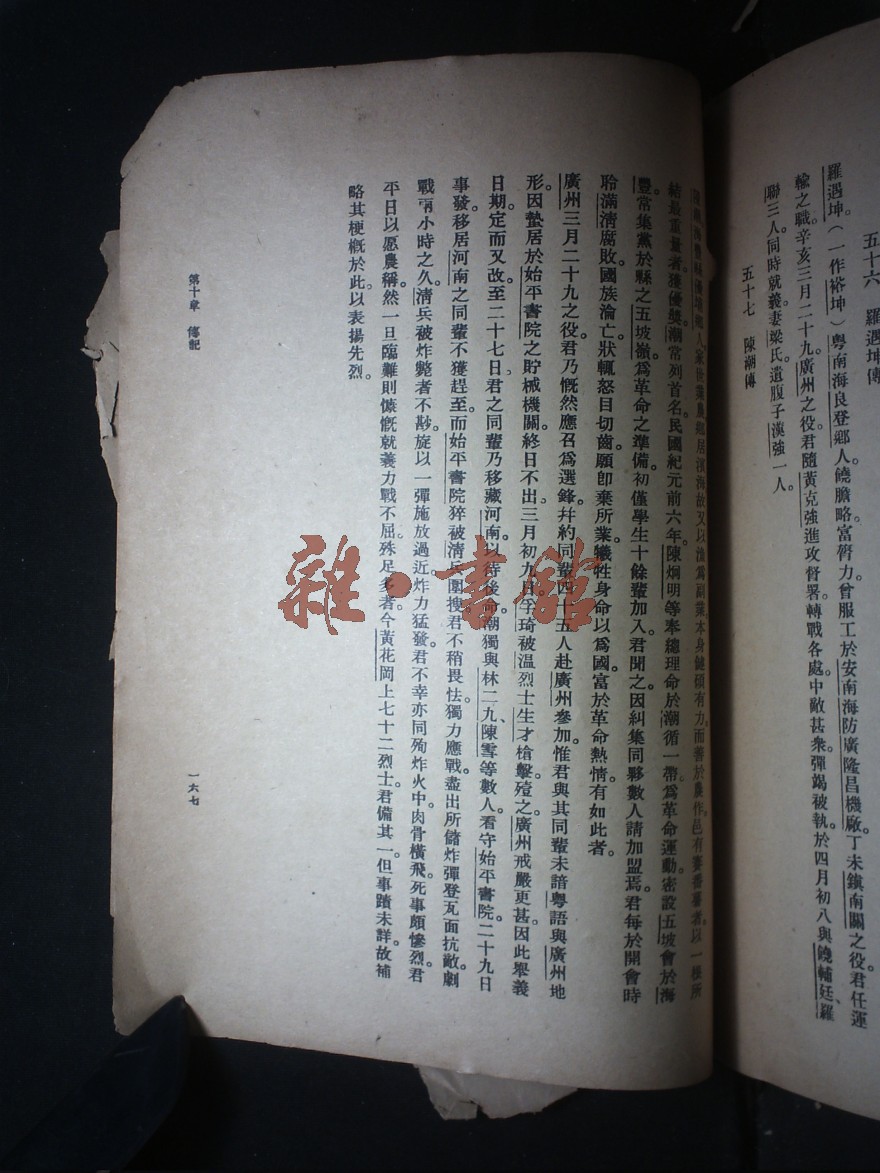 五十六　羅遇坤傳
羅遇坤。（一作裕坤）粵南海良登鄉人。饒膽略富膂力。曾服工於安南海防廣隆昌機廠。丁未鎮南關之役。君任運
輸之職。辛亥三月二十九。廣州之役。君隨黃克強進攻督署。轉戰各處。中敵甚衆。彈竭被執。於四月初八與饒輔廷、羅
聯三人同時就義。妻梁氏。遺腹子漢強一人。
五十七　陳潮傳
人。家世業農。鄉居濱海。故又以漁為副業。本身健碩有力。而善於農作。邑有賽番薯者。以一根所
結最重量者。獲優獎。潮常列首名。民國紀元前六年。陳炯明等奉總理命於潮循一帶為革命運動。密設五坡會於海
豐。常集黨於縣之五坡嶺。為革命之準備。初僅學生十餘輩加入。君聞之。因糾集同夥數人。請加盟焉。君每於開會時
聆滿清腐敗。國族淪亡狀。輒怒目切齒。願即棄所業。犧牲身命以為國。富於革命熱情有如此者。
廣州三月二十九之役。君乃慨然應召為選鋒。幷約同輩四十五人。赴廣州參加。惟君與其同輩未諳粵語與廣州地
形。因蟄居於始平書院之貯械機關。終日不出。三月初九日。孚琦被溫烈士生才槍擊殪之。廣州戒嚴更甚。因此舉義
日期定而又改。至二十七日。君之同輩乃移藏河南。以待後命。潮獨與林二九、陳雪等數人。看守始平書院。二十九日
事發。移居河南之同輩不獲趕至。而始平書院猝被清兵圍搜。君不稍畏怯。獨力應戰。盡出所儲炸彈登瓦面抗敵。劇
戰兩小時之久。清兵被炸斃者不尠。旋以一彈施放過近。炸力猛發。君不幸亦同殉炸火中。肉骨橫飛。死事頗慘烈。君
平日以愿農稱。然一旦臨難則慷慨就義。力戰不屈。殊足多者。今黃花岡上七十二烈士。君備其一。但事蹟未詳。故補
略其梗概於此。以表揚先烈。
第十章　傳記
一六七
雜·書館